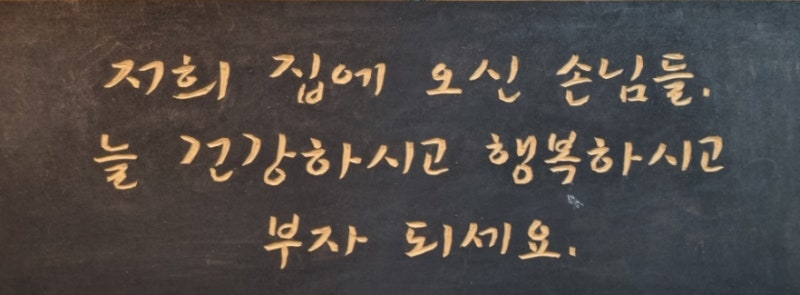 저희 집에 오신 손님들.
늘 건강하시고 행복하시고
부자 되세요.